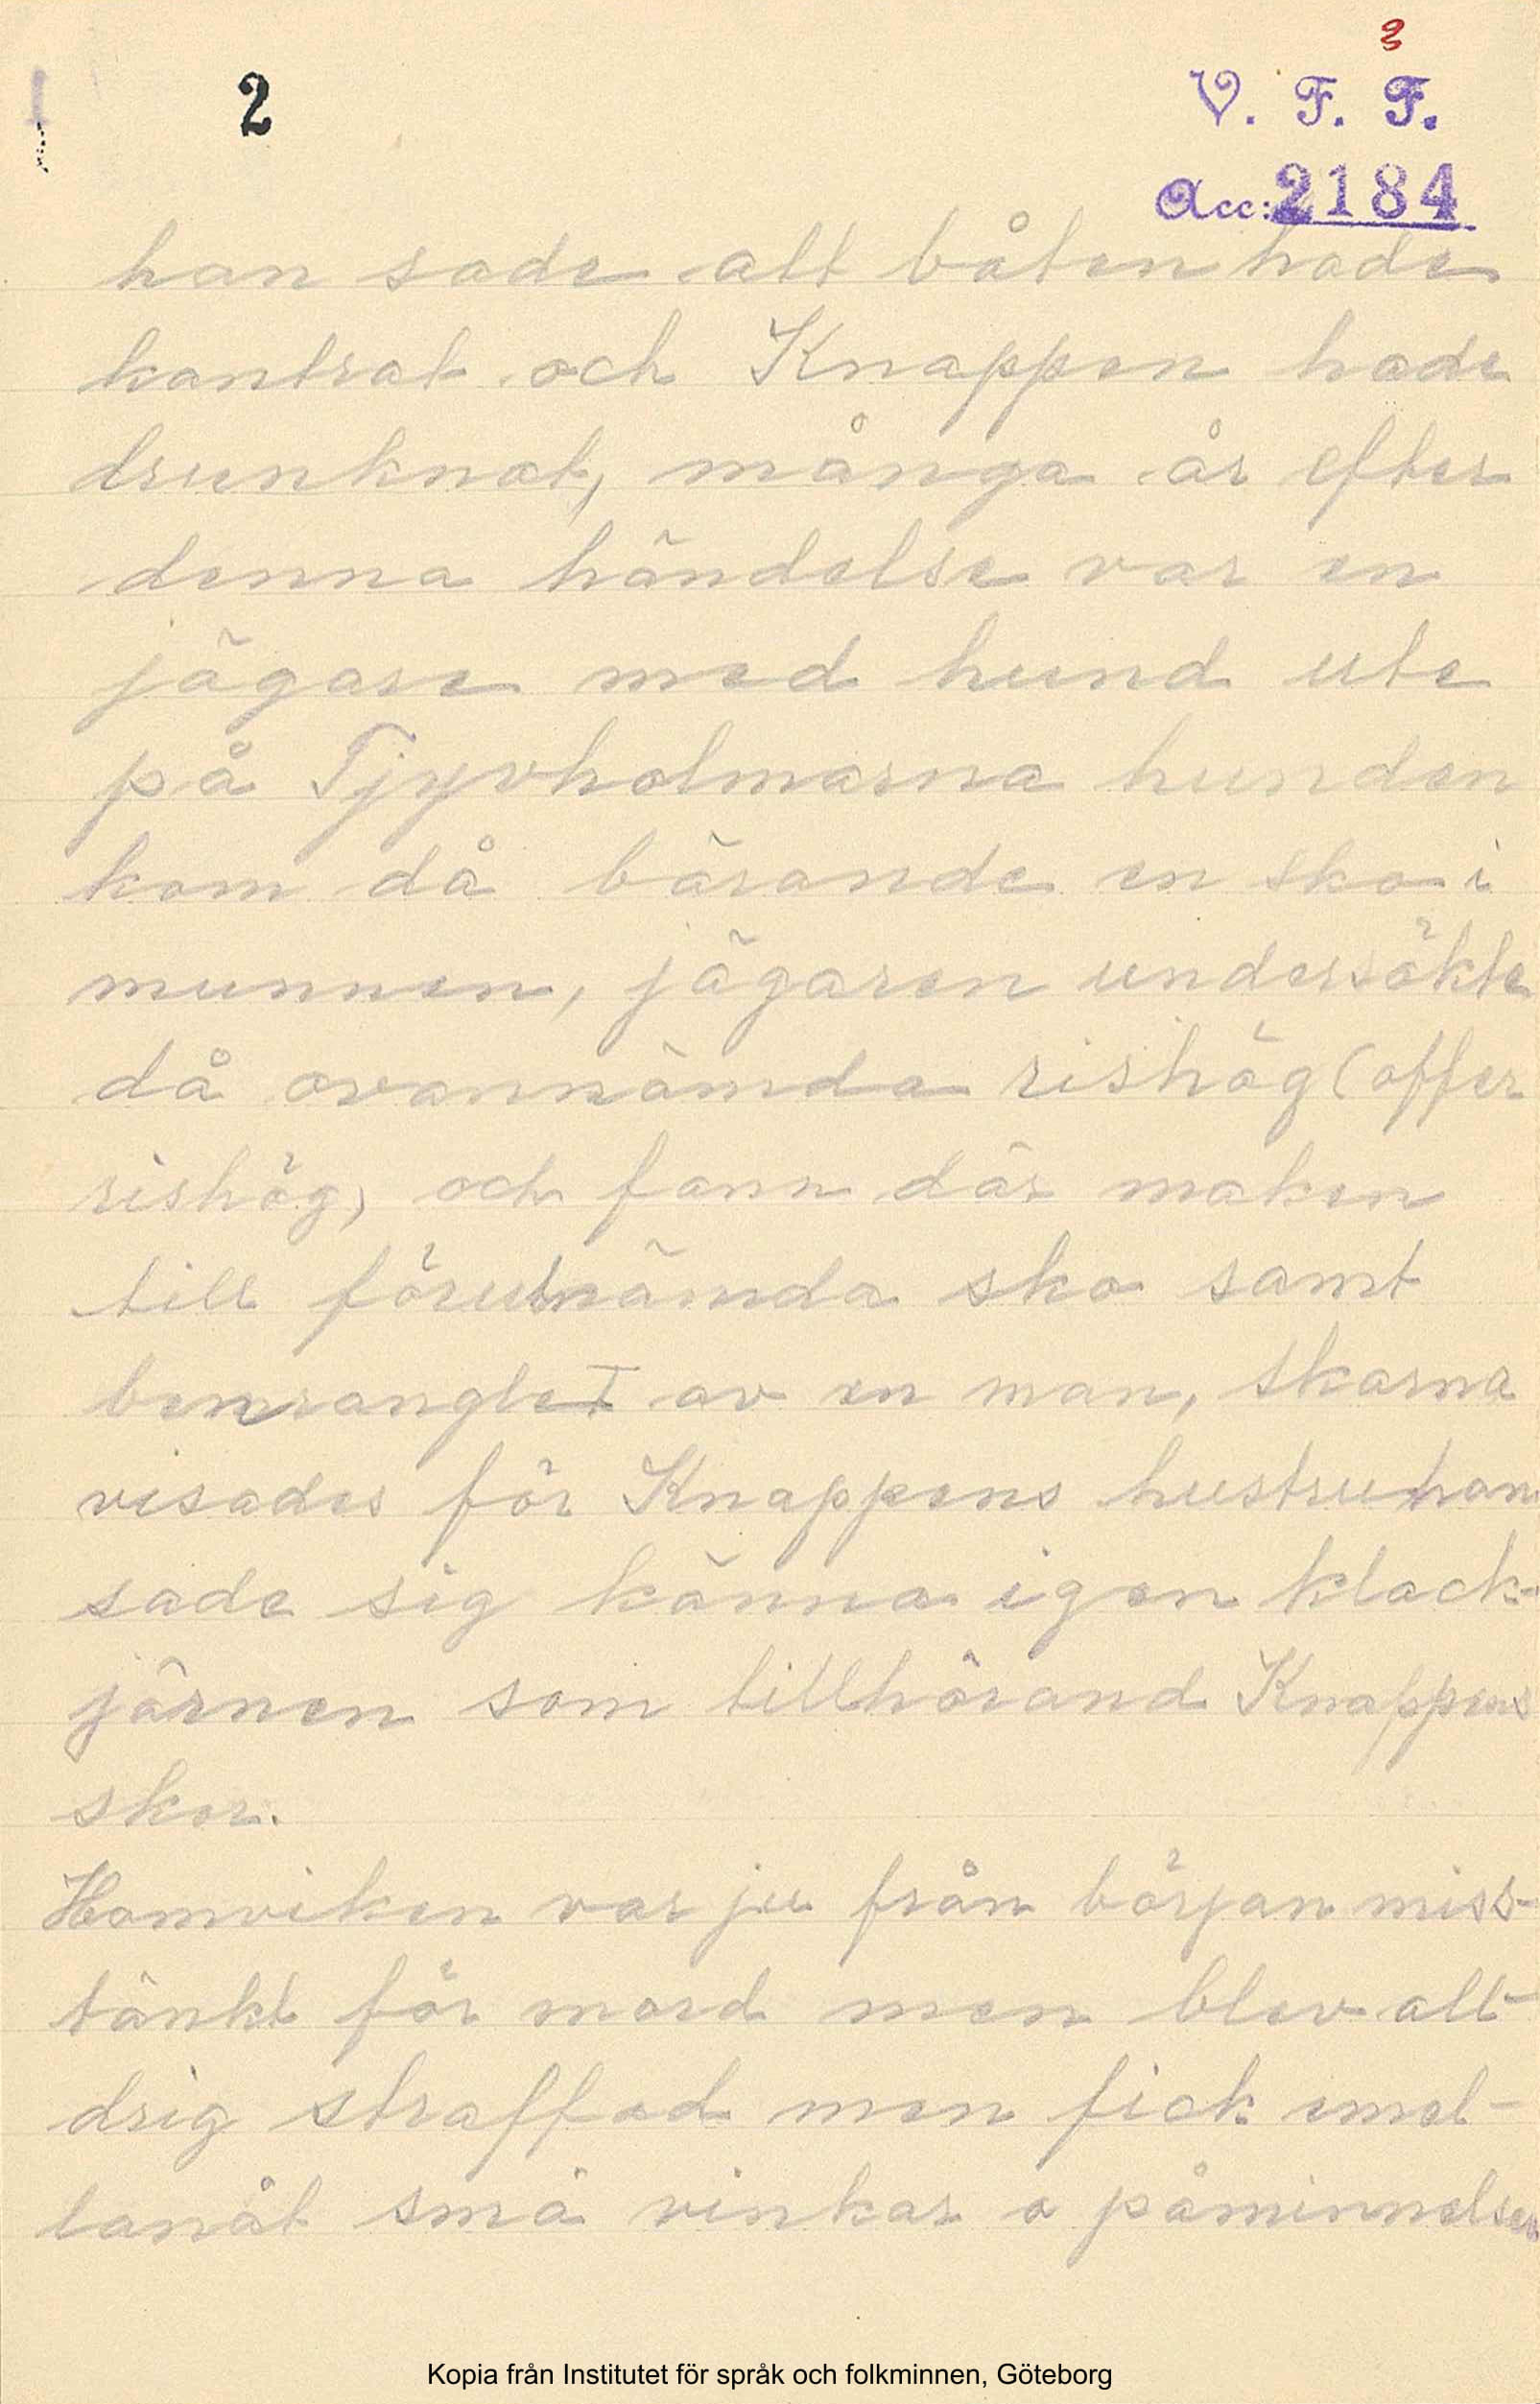 3
2
V. F. F.
Acc: 2184
han sade att båten hade
kantrat och Knappen hade
drunknat, många år efter
denna händelse var en
jägare med hund ute
på Tjyvholmarna hunden
kom då bärande en sko i
munnen, jägaren undersökte
då ovannämda rishög (offer
rishög) och fann där maken
till förutnämda sko samt
benranglet av en man, skorna
visades för Knappens hustru han
sade sig känna igen klack-
järnen som tillhörand Knappens
skor.
Hamviken var ju från början miss-
tänkt för mord men blev alt-
drig straffad men fick emel-
lanåt små vinkar o påminnelser
Kopia från Institutet för språk och folkminnen, Göteborg